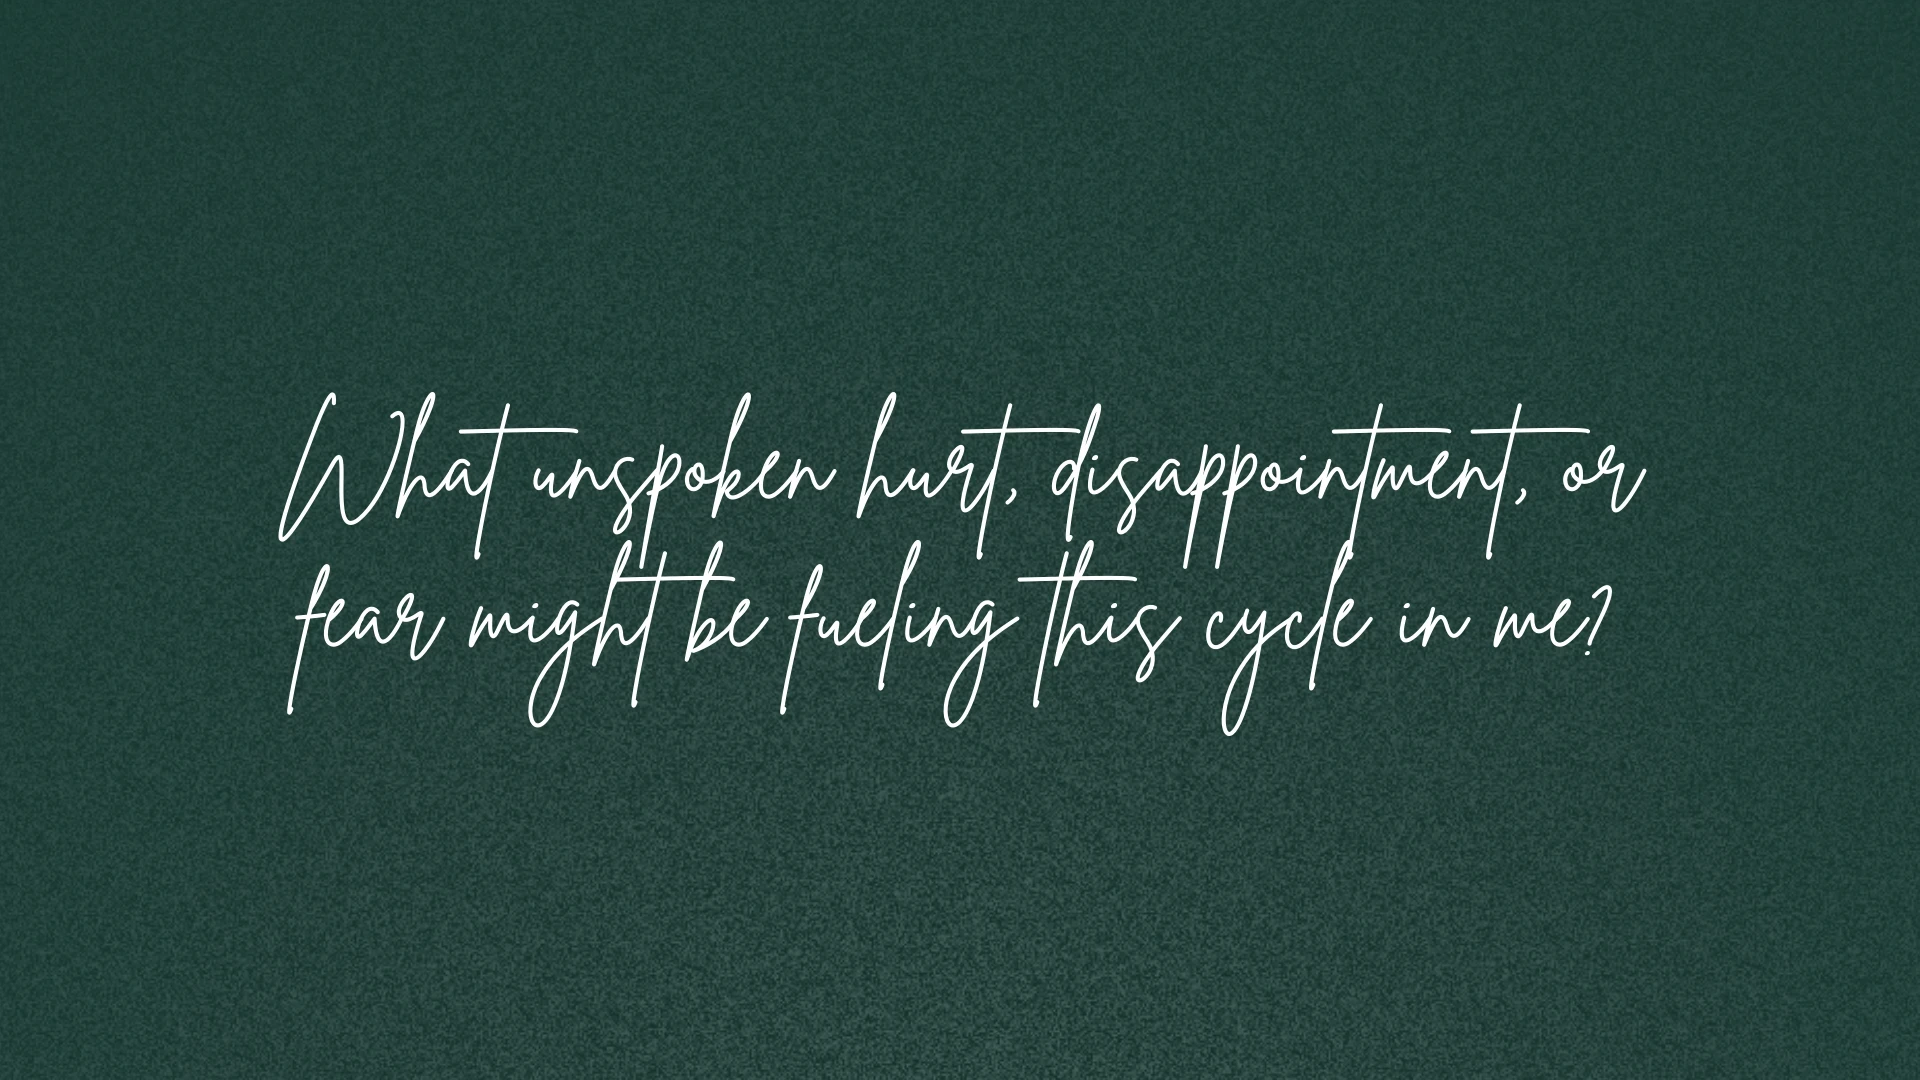 What unspoken hurt, disappointment, or
fear might be fueling this cycle in me?